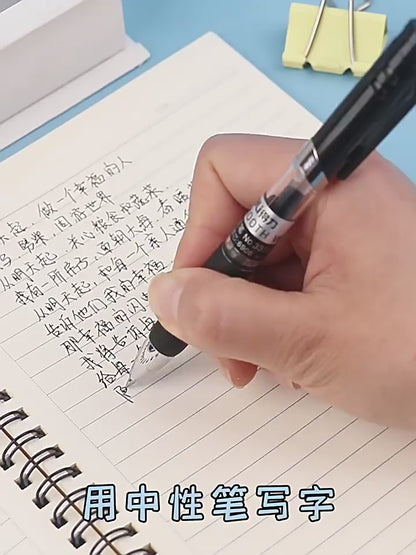 天起 做一个幸福的人
马 劈柴 周游世界
天起 关心粮食和蔬菜
我有一所房子 面朝大海 春暖
从明天起，和每一个亲人通
告诉他们我的幸福
那幸福的闪
我将告诉每
给每
得力
OOTH
No.33
用中性笔写字